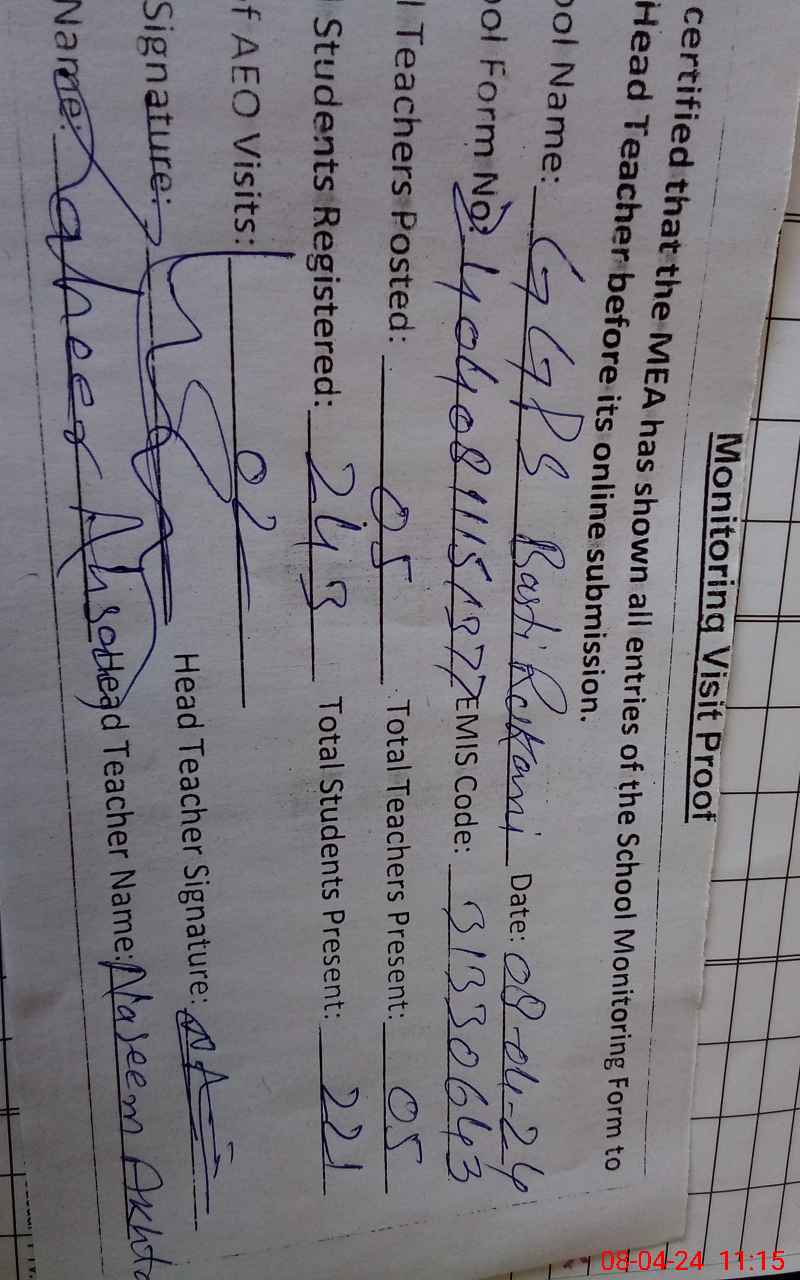 Monitoring Visit Proof
certified that the MEA has shown all entries of the School Monitoring Form to
Head Teacher before its online submission.
ool Name: GGPS Basti Rukani Date: 08-04-24
ool Form No: EMIS Code: 31330643
l Teachers Posted: 05 Total Teachers Present: 05
Students Registered: 243 Total Students Present: 221
of AEO Visits: 02
Signature: Head Teacher Signature:
Name: Head Teacher Name: Naseem Akhta
08-04-24 11:15